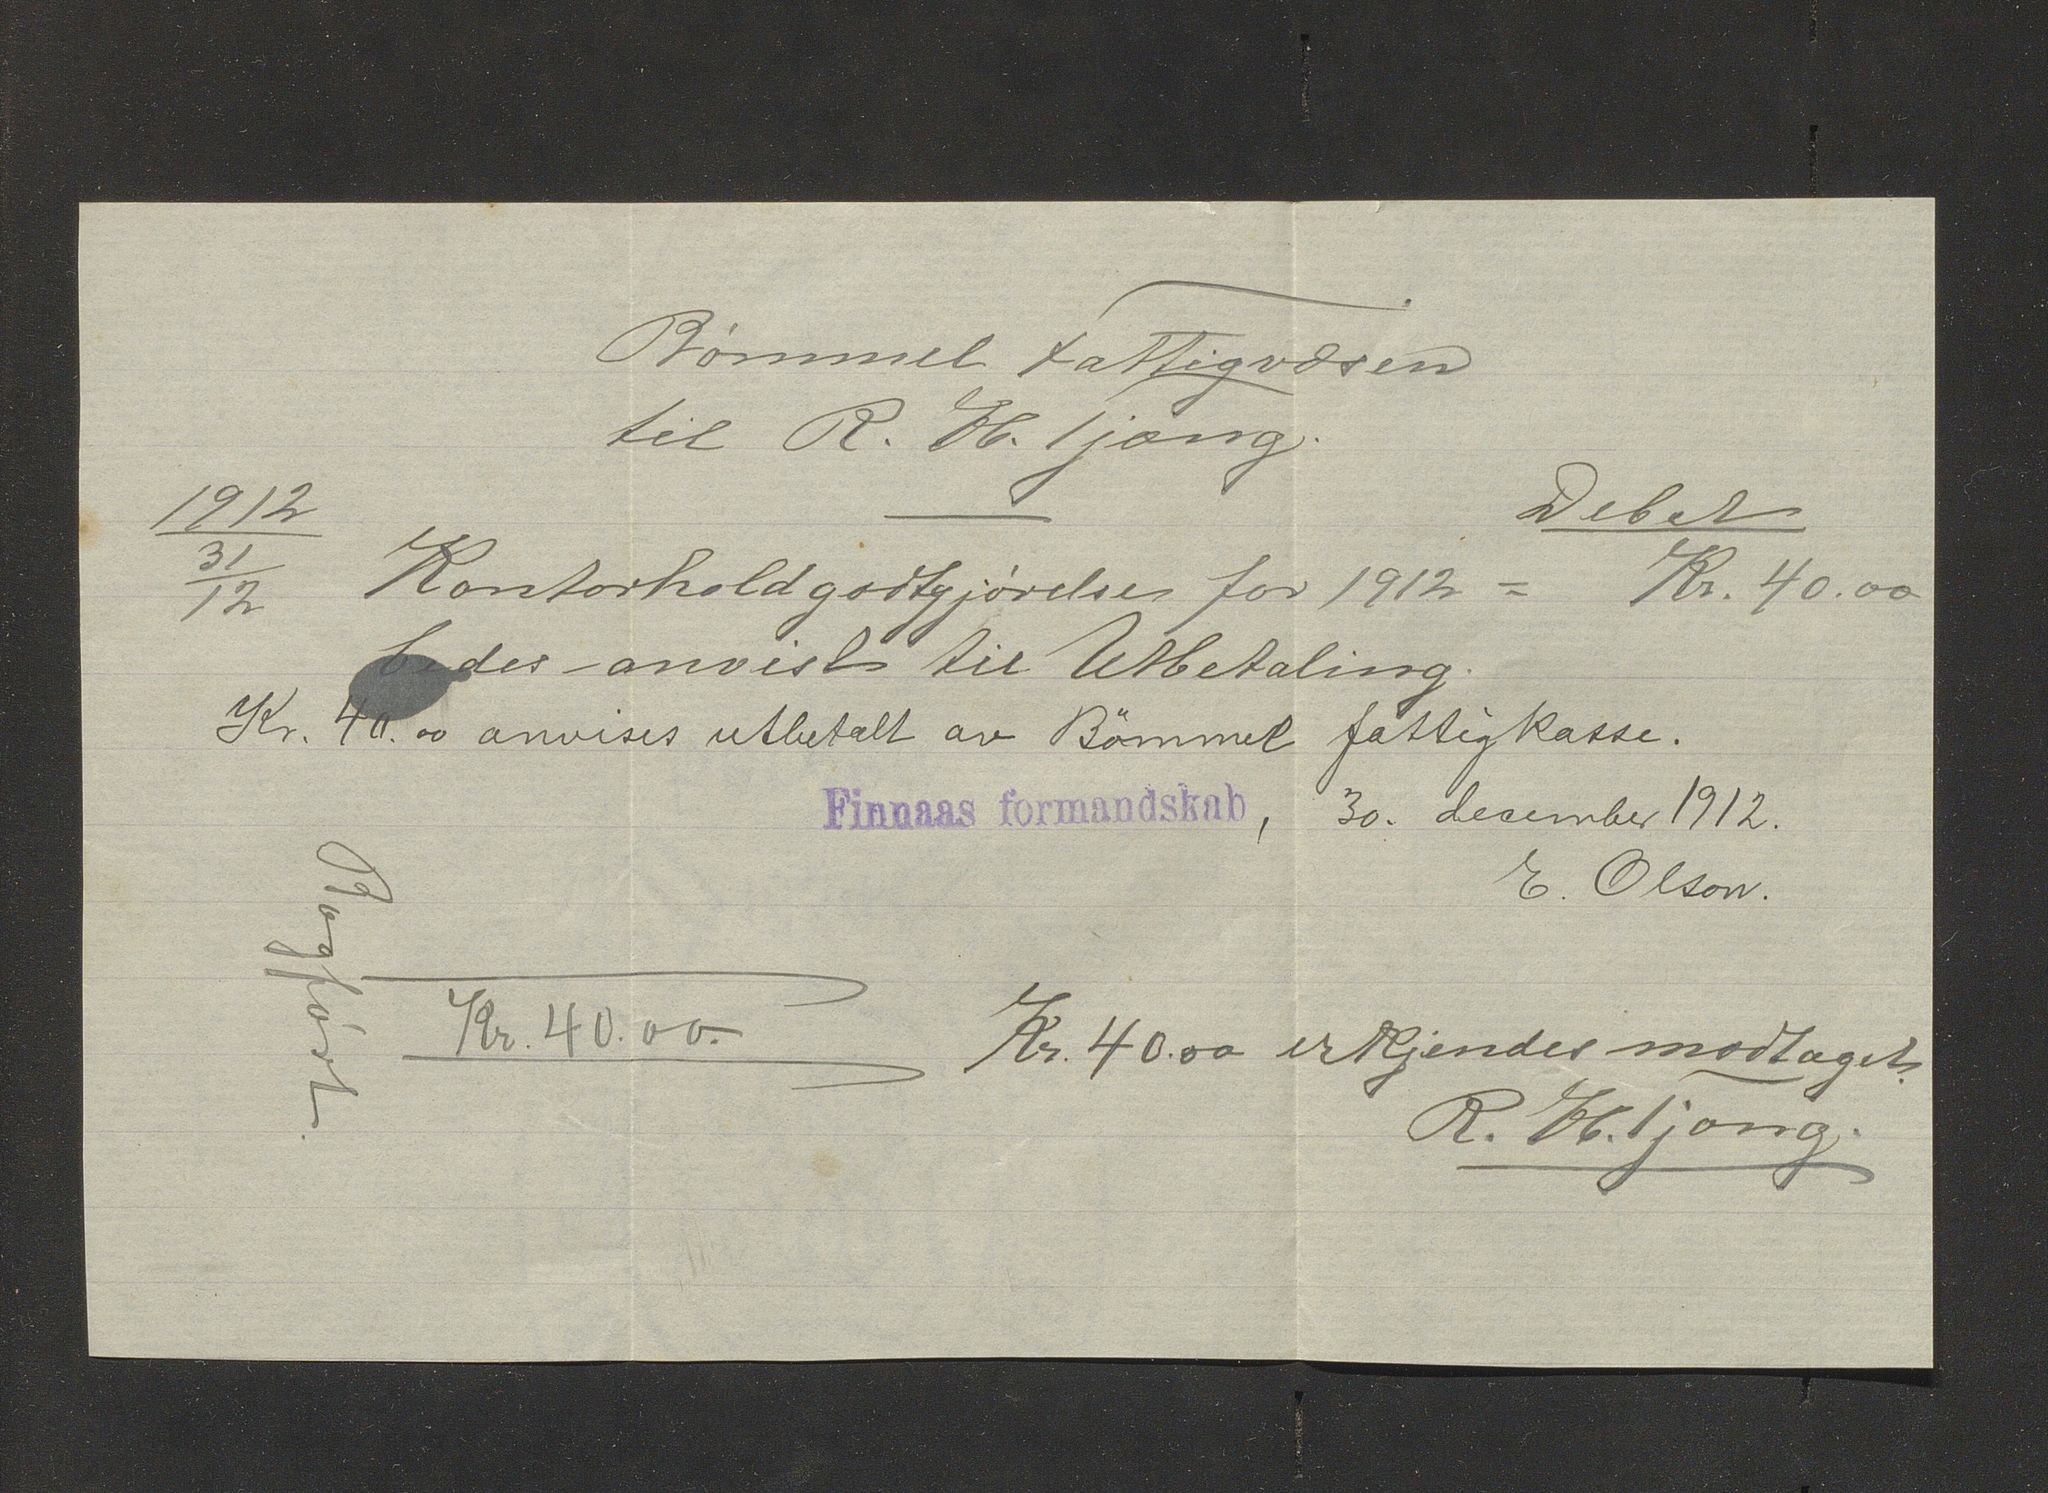 Bømmel Fattigvæsen
til R. H. Tjong.
Debet
1912
31/12 Kontorholdgodtgjørelse for 1912 = Kr. 40.00
bedes anvist til Utbetaling.
Kr. 40.00 anvises utbetalt av Bömmel fattigkasse.
Finnaas formandskab, 30. december 1912.
E. Olson.
Bogført.
Kr. 40.00.
Kr. 40.00 erkjendes modtaget.
R. H. Tjong.